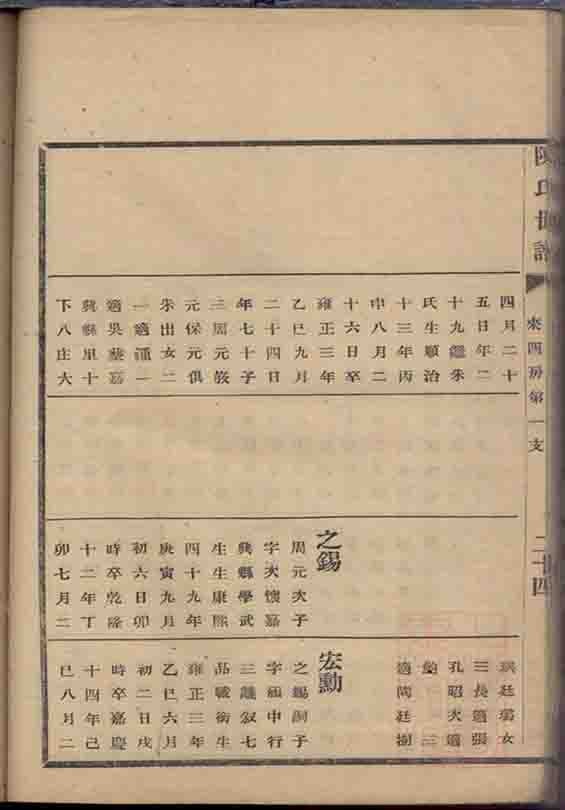 陳氏世譜
來四房第一支
二十四
四月二十
五日年二
十九繼朱
氏生順治
十三年丙
申八月二
十六日卒
雍正三年
乙巳九月
二十四日
年七十子
三周元
元保元俱
朱出女二
一適潘一
適吳嘉
興縣里十
下八庄六
之錫
周元次子
字天懷嘉
興縣學武
生生康熙
四十九年
庚寅九月
初六日卯
時卒乾隆
十二年丁
卯七月二
廷裳女
三長適張
孔昭次適
鮑 三
適陶廷樹
宏勳
之錫嗣子
字福中行
三議敘七
品職銜生
雍正三年
乙巳六月
初二日戌
時卒嘉慶
十四年己
巳八月二